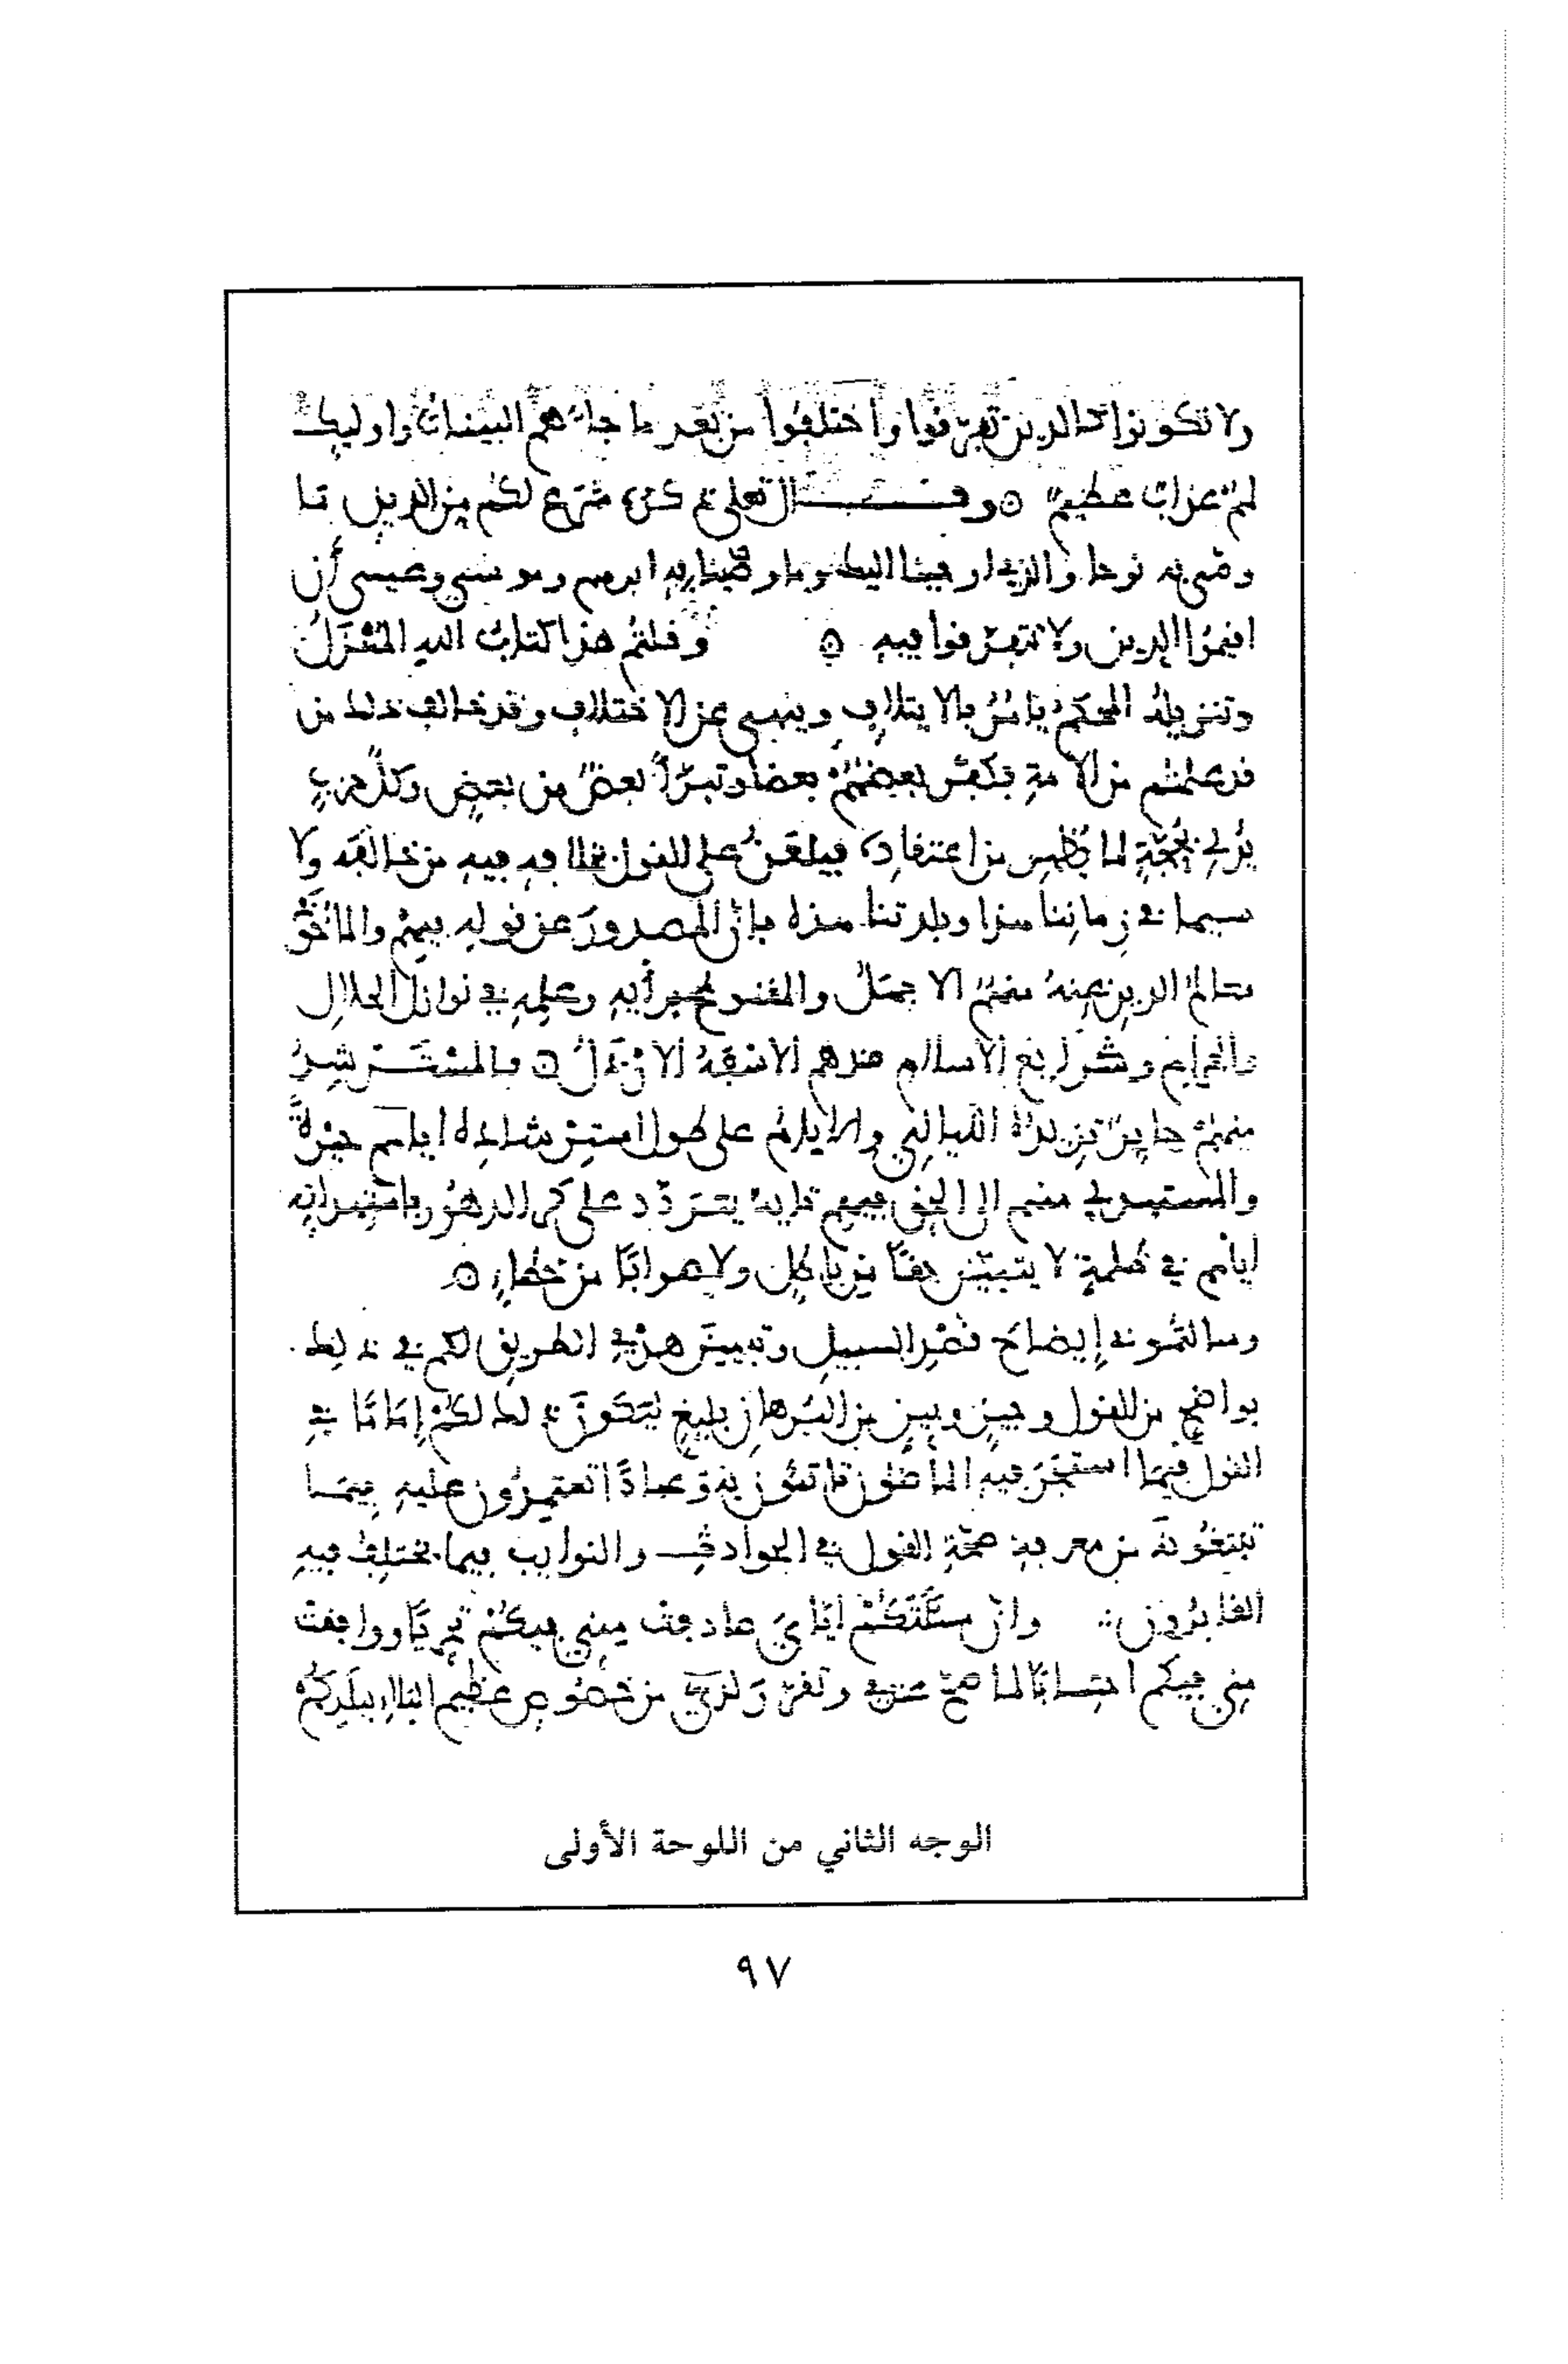 ولا تكونوا كالذين تفرقوا واختلفوا من بعد ما جاءهم البينات واوليك
لهم عذاب عظيم ۞ وقال تعلى ذكره شرع لكم من الدين ما
وصى به نوحا والذى اوحينا اليك وما وصينا به ابرهيم وموسى وعيسى أن
اقيموا الدين ولا تتفرقوا فيه ۞ وقلتم هذا كتاب الله المنزل
وتنزيله المحكم يامر بالايتلاف وينهى عن الاختلاف وقد خالف ذلك من
قد علمتم من الامة فكفر بعضهم بعضا وتبرأ بعض من بعض وكل حزب
يدلى بحجة لما يظهر من اعتقاده فيلعن على القول فيه من خالفه ولا
سيما فى زماننا هذا وبلدتنا هذه فإن المصدور عن قوله فيهم والماخوذ
معالم الدين عنه منهم الاجهل والمقنوع برأيه وعلمه فى نوازل الحلال
والحرام وشرايع الاسلام عندهم الاسفه الارذل ۞ فالمسترشد
منهم حاير تزيده الليالى والايام على طول استرشاده اياهم حيرة
والمستهدى منهم الى الحق فيهم تايه يتردد على كر الدهور باستهدايه
اياهم فى ظلمة لا يتبين حقا من باطل ولا صوابا من خطا ۞
وسالتمونى إيضاح قصد السبيل وتبيين هدى الطريق لكم فى ذلك
بواضح من القول وجيز وبين من البرهان بليغ ليكون ذلك لكم إماما فى
القول فيما اشتجر فيه الماضون تاتمون به وعمادا تعتمدون عليه فيما
تبتغونه من معرفة صحة القول فى الحوادث والنوايب فيما يختلف فيه
الغابرون وان مسئلتكم اياى صادفت منى فيكم تحريا ووافقت
منى فيكم احتسابا لما صح عندى وتقرر لدى من خصوص عظيم البلاء ببلدكم
الوجه الثاني من اللوحة الأولى
٩٧